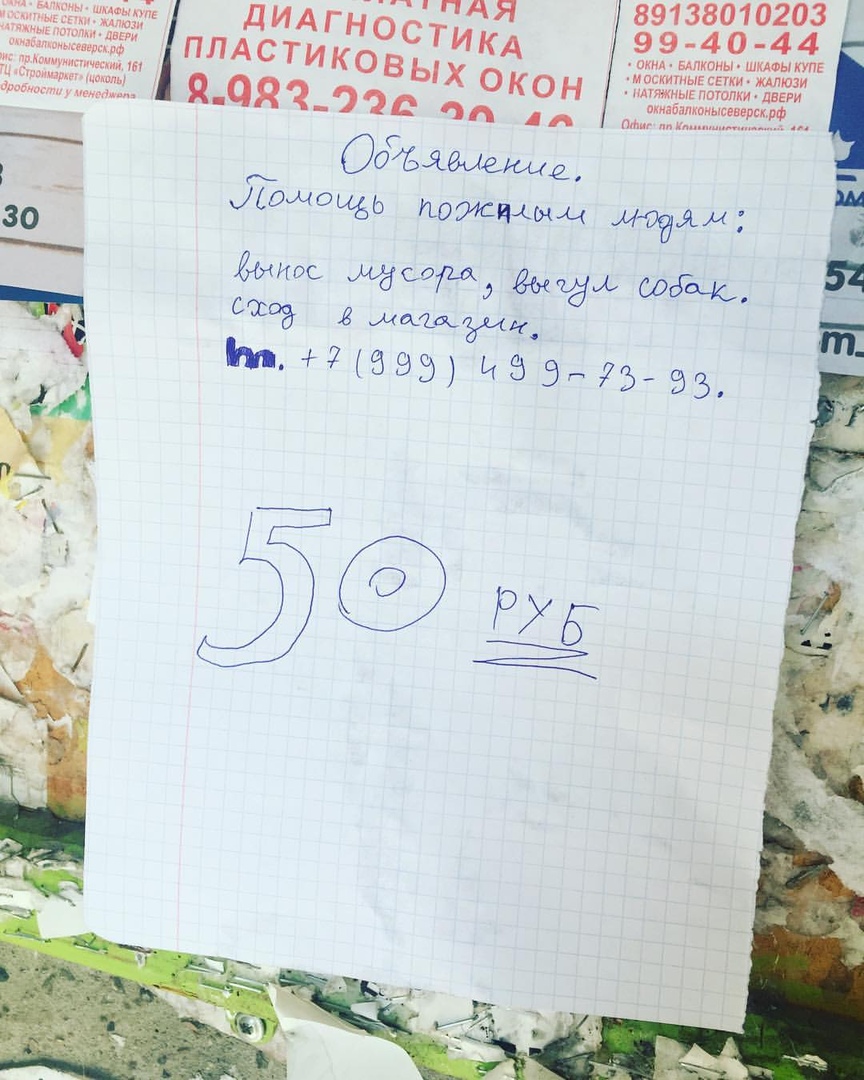 ОКНА • БАЛКОНЫ • ШКАФЫ КУПЕ
МОСКИТНЫЕ СЕТКИ • ЖАЛЮЗИ
НАТЯЖНЫЕ ПОТОЛКИ • ДВЕРИ
окнабалконысеверск.рф
Офис: пр.Коммунистический, 161
ТЦ «Строймаркет» (цоколь)
подробности у менеджера
ДИАГНОСТИКА
ПЛАСТИКОВЫХ ОКОН
8-983-236-
89138010203
99-40-44
• ОКНА • БАЛКОНЫ • ШКАФЫ КУПЕ
• МОСКИТНЫЕ СЕТКИ • ЖАЛЮЗИ
• НАТЯЖНЫЕ ПОТОЛКИ • ДВЕРИ
окнабалконысеверск.рф
Офис: пр.Коммунистический, 161
30
54
Объявление.
Помощь пожилым людям:
вынос мусора, выгул собак.
сход в магазин.
т. +7 (999) 499-73-93.
50 РУБ